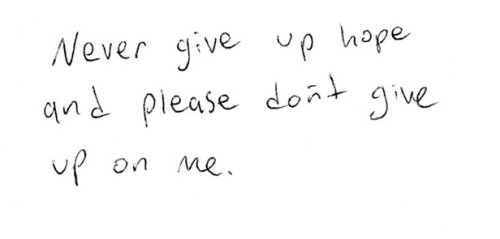 Never give up hope
and please don't give
up on me.